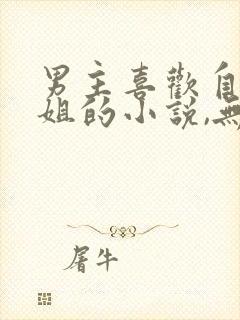 男主喜歡自
姐的小說,無
屠牛